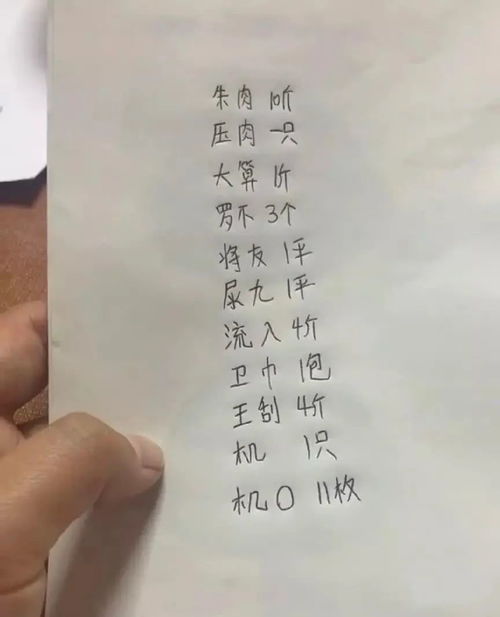 朱肉 10介
压肉 一只
大算 1介
罗不 3个
将友 1坪
尿九 1平
流入 4价
卫巾 1包
王刮 4价
机 1只
机〇 11枚